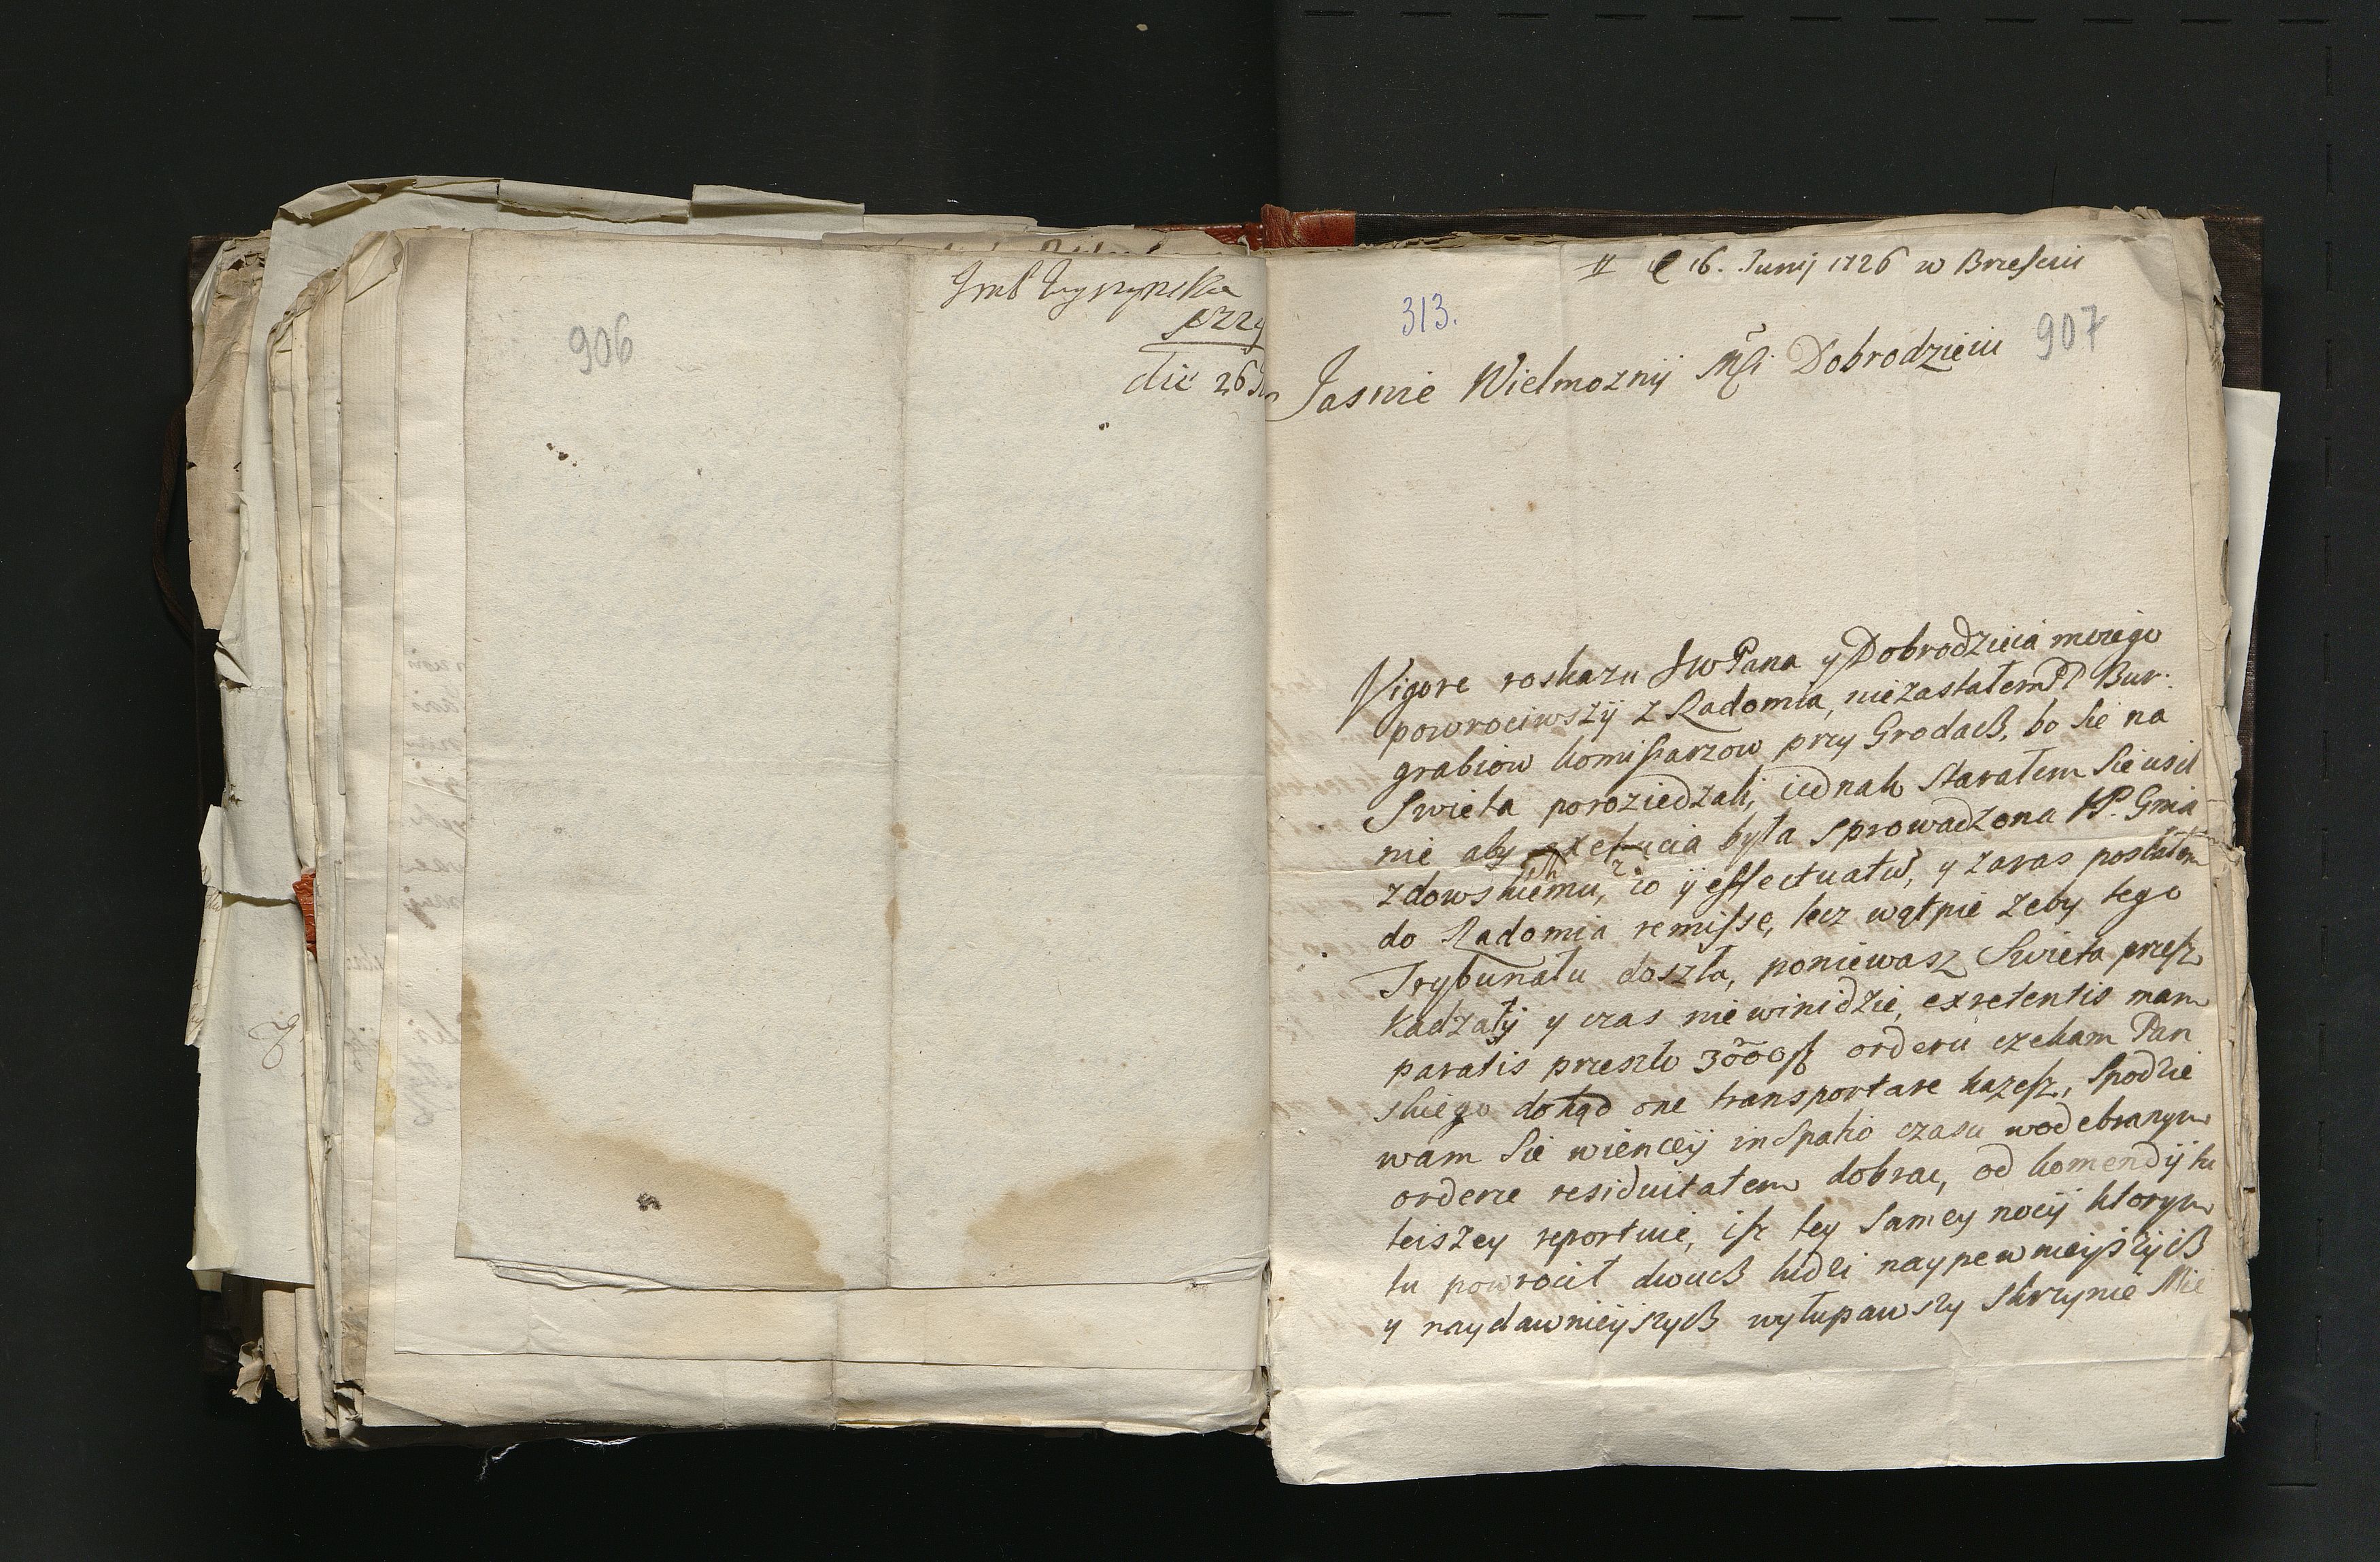 906
die 26
16. Junij 1726 w Brzesciu
313.
907
Jasnie Wielmoznij Msci Dobrodzieiu
Vigore roskazu JWPana y Dobrodzieia moiego
powrociwszÿ z Radomia, niezastałem PP Bur:
grabiow komissarzow przy Grodach, bo sie na
Swieta poroziedzali, iednak starałem sie usil
nie aby exekucia była sprowadzona JP. Gnia
zdowskiemu, co ÿ effectuatū, y zaras posłałem
do Radomia remisse, lecz wątpie zeby tego
Trybunału doszła, poniewasz Swieta przesz
kadzałÿ y czas niewinidzie, exretentis mam
paratis przeszło 3000 orderu czekam Pan
skiego dokąd one transportare kazesz, spodzie
wam sie wiencÿ in spatio czasu wodebranym
orderze residuitatem dobrac, od komendÿ tu
teiszey reportuie, isz tey samey nocÿ ktorym
tu powrocił dwuch ludzi naypewnieÿszÿch
y naydawnieÿszych wyłupawszy skrzynie Mie